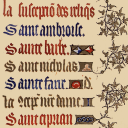 la susception des reliqs
Saint ambroise.
Sainte barbe.
Saint nicolas
Sainte fare.
la ɔcept' nr̃e dame.
Saint ciprian